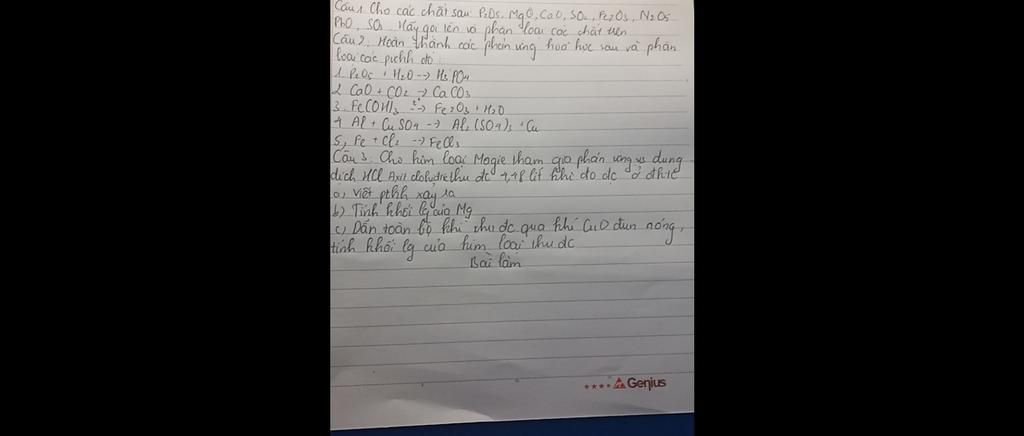 Câu 1. Cho các chất sau: P2O5, MgO, CaO, SO2, Fe2O3, N2O5
PbO, SO3. Hãy gọi tên và phân loại các chất trên
Câu 2. Hoàn thành các phản ứng hoá học sau và phân
loại các pthh đó
1. P2O5 + H2O → H3PO4
2. CaO + CO2 → CaCO3
3. Fe(OH)3 t°→ Fe2O3 + H2O
4. Al + CuSO4 → Al2(SO4)3 + Cu
5, Fe + Cl2 → FeCl3
Câu 3. Cho kim loại Magie tham gia phản ứng vs dung
dịch HCl Axit clohydric thu đc 4,48 lít khí đo đc ở đktc
a, viết pthh xảy ra
b) Tính khối lg của Mg
c) Dẫn toàn bộ khí thu đc qua khí CuO đun nóng,
tính khối lg của kim loại thu đc
Bài làm
Genius